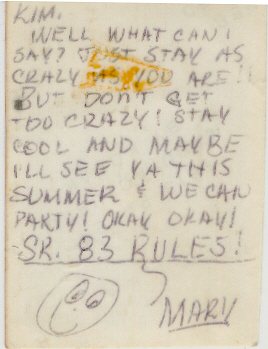 KIM,
WELL WHAT CAN I
SAY? JUST STAY AS
CRAZY AS YOU ARE!!
BUT DON'T GET
TOO CRAZY! STAY
COOL AND MAYBE
I'LL SEE YA THIS
SUMMER & WE CAN
PARTY! OKAY OKAY!
SR. 83 RULES!
MARY